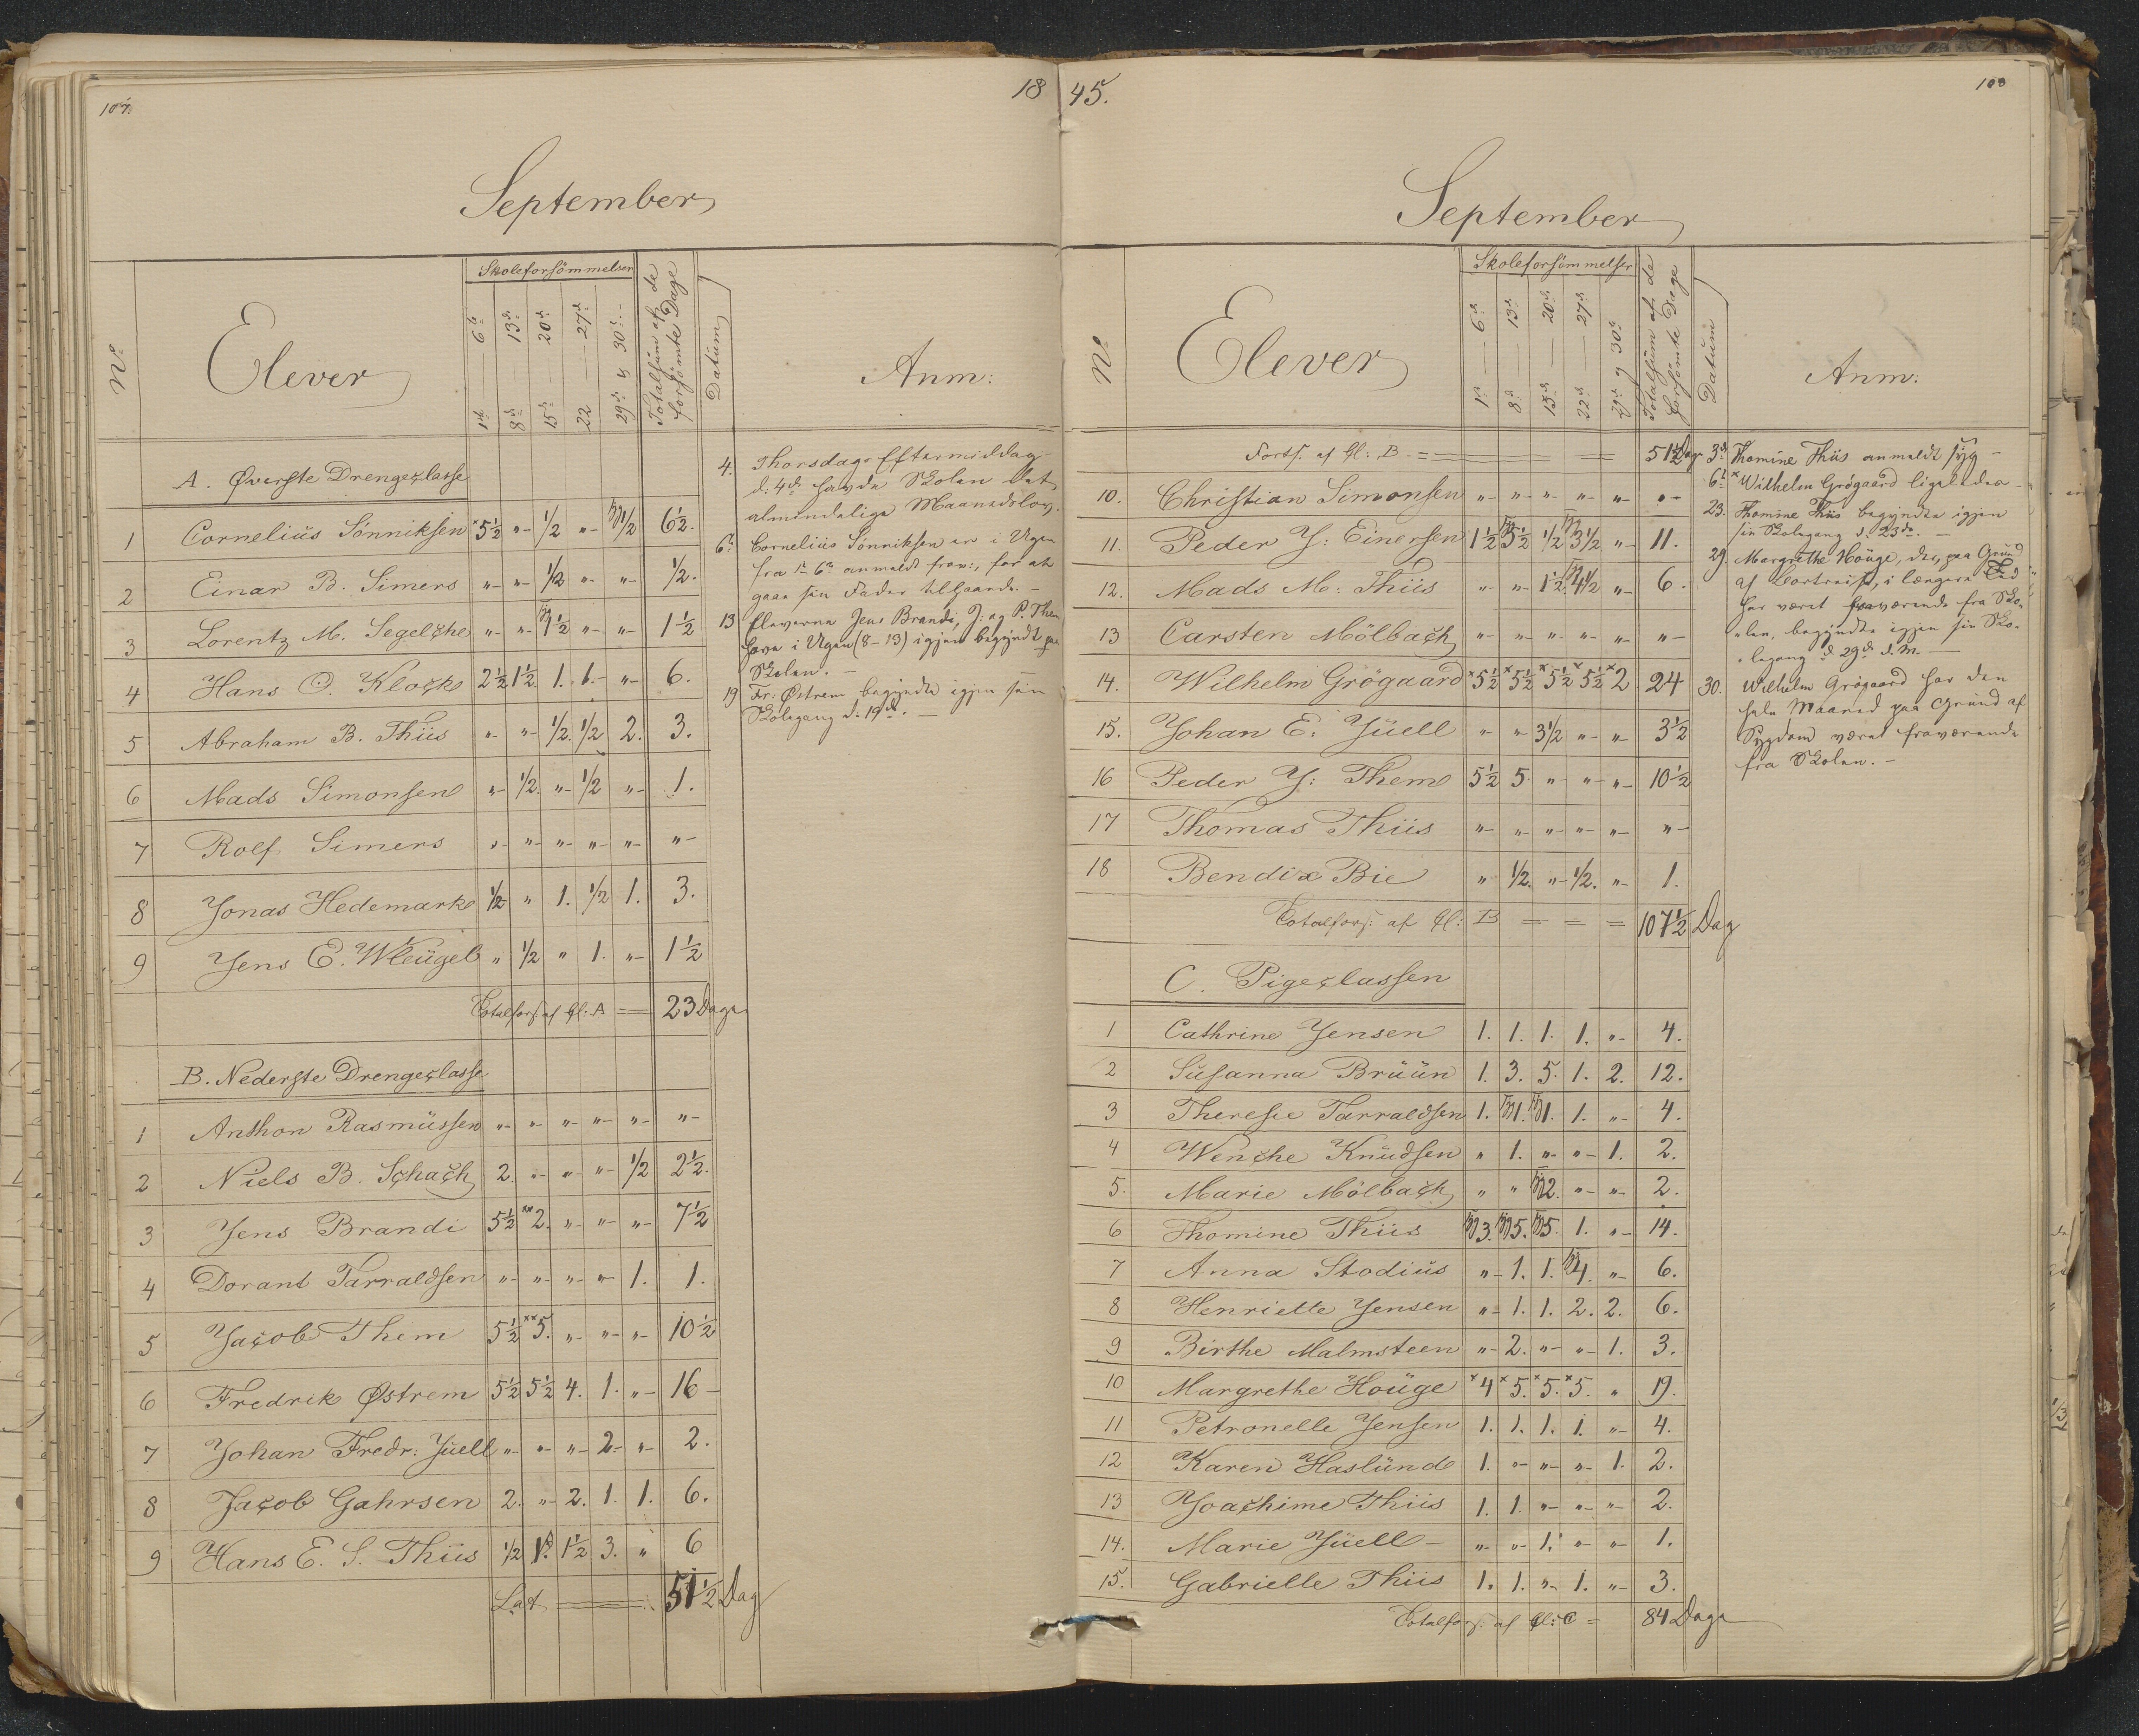 107.
18
September
No
Elever
Skoleforsömmelser
1ste 6te
8de 13de
15de 20de
22 27de
29de og 30te
Totalsüm af de
forsömte Dage
Datum
Anm:
A. Øverste Drengeclasse
1 Cornelius Sönniksen ×5½ "- ½ "- syg 1½ 6½.
2 Einar B. Simers "- "- ½ "- "- ½.
3 Lorentz M. Segelcke "- "- syg 1½ "- "- 1½
4 Hans C. Klocke 2½ 1½. 1. 1.- "- 6.
5 Abraham B. Thiis "- "- ½. ½ 2. 3.
6 Mads Simonsen "- ½. "- ½ "- 1.
7 Rolf Simers "- "- "- "- "- "-
8 Jonas Hedemark ½ " 1. ½ 1. 3.
9 Jens E. Kleügel " ½ " 1. "- 1½
Totalfors. af Cl: A = 23 Dage
B. Nederste Drengeclasse
1 Anthon Rasmüssen "- "- "- "- "- "-
2 Niels B. Schach 2. "- "- "- ½ 2½.
3 Jens Brandi 5½ ××2. "- "- "- 7½
4 Dorant Tarraldsen "- "- "- "- 1. 1.
5 Jacob Them 5½ ××5. "- "- "- 10½
6 Fredrik Østrem 5½ 5½ 4. 1. "- 16-
7 Johan Fredr: Jüell "- "- "- 2- "- 2.
8 Jacob Gahrsen 2. "- 2. 1. 1. 6.
9 Hans E. S. Thiis ½ 1. 1½ 3. " 6
Lat = 51½ Dag
4. Thorsdags Eftermiddag
d: 4de havde Skolen det
almindelige Maanedslov.
6te Cornelius Sönniksen er i Ugen
fra 1-6te anmeldt frav:, for at
gaae sin Fader tilhaande. -
13 Eleverne Jens Brandi, J: og P. Them
have i Ugen (8-13) igjen begyndt paa
Skolen. -
19 Fr: Østrem begyndte igjen sin
Skolegang d: 19de. -
45.
108
September
No
Elever
Skoleforsömmelser
1ste 6te
8de 13de
15de 20de
22de 27de
29de og 30te
Totalsüm af de
forsömte Dage
Datum
Anm:
Forts. af Cl: B. = 51½ Dag
10. Christian Simonsen "- "- "- "- "- "-
11. Peder J: Einersen 1½ syg 5½ ½ syg 3½ "- 11.
12. Mads M: Thiis "- "- 1½. syg 4½ "- 6.
13 Carsten Mölbach "- "- "- "- "- "-
14. Wilhelm Grögaard ×5½ ×5½ ×5½ ×5½ ×2 24
15. Johan E. Jüell "- "- 3½ "- "- 3½
16 Peder J: Them 5½ 5. "- "- "- 10½
17 Thomas Thiis "- "- "- "- "- "-
18 Bendix Bie " ½. "- ½. "- 1.
Totalfors: af Cl: B = = = 107½ Dag
C. Pigeclassen
1 Cathrine Jensen 1. 1. 1. 1. "- 4.
2 Susanna Brüün 1. 3. 5. 1. 2. 12.
3 Theresie Tarraldsen 1. syg 1. syg 1. 1. "- 4.
4 Wenche Knüdsen " 1. "- "- 1. 2.
5. Marie Mölbach " " syg 2. "- "- 2.
6 Thomine Thiis syg 3. syg 5. syg 5. 1. "- 14.
7 Anna Stodiüs "- 1. 1. syg 4. "- 6.
8 Henriette Jensen "- 1. 1. 2. 2. 6.
9 Birthe Malmsteen "- 2. "- "- 1. 3.
10 Margrethe Houge ×4 ×5. ×5. ×5. " 19.
11 Petronelle Jensen 1. 1. 1. 1. "- 4.
12 Karen Haslünd 1. "- "- "- 1. 2.
13 Joachime Thiis 1. 1. "- "- "- 2.
14. Marie Jüell - "- "- 1. "- "- 1.
15. Gabrielle Thiis 1. 1. "- 1. "- 3.
Totalfors. af Cl: C = 84 Dage
3de Thomine Thiis anmeldt syg -
6te ×Wilhelm Grögaard ligeledes -
23. Thomine Thiis begyndte igjen
sin Skolegang d. 23de. -
29. Margrethe Houge, der, paa Grund
af Bortreise, i længere Tid
har været fraværende fra Sko-
len, begyndte igjen sin Sko-
legang d. 29de d. M. -
30. Wilhelm Grögaard har den
hele Maaned paa Grund af
Sygdom været fraværende
fra Skolen. -